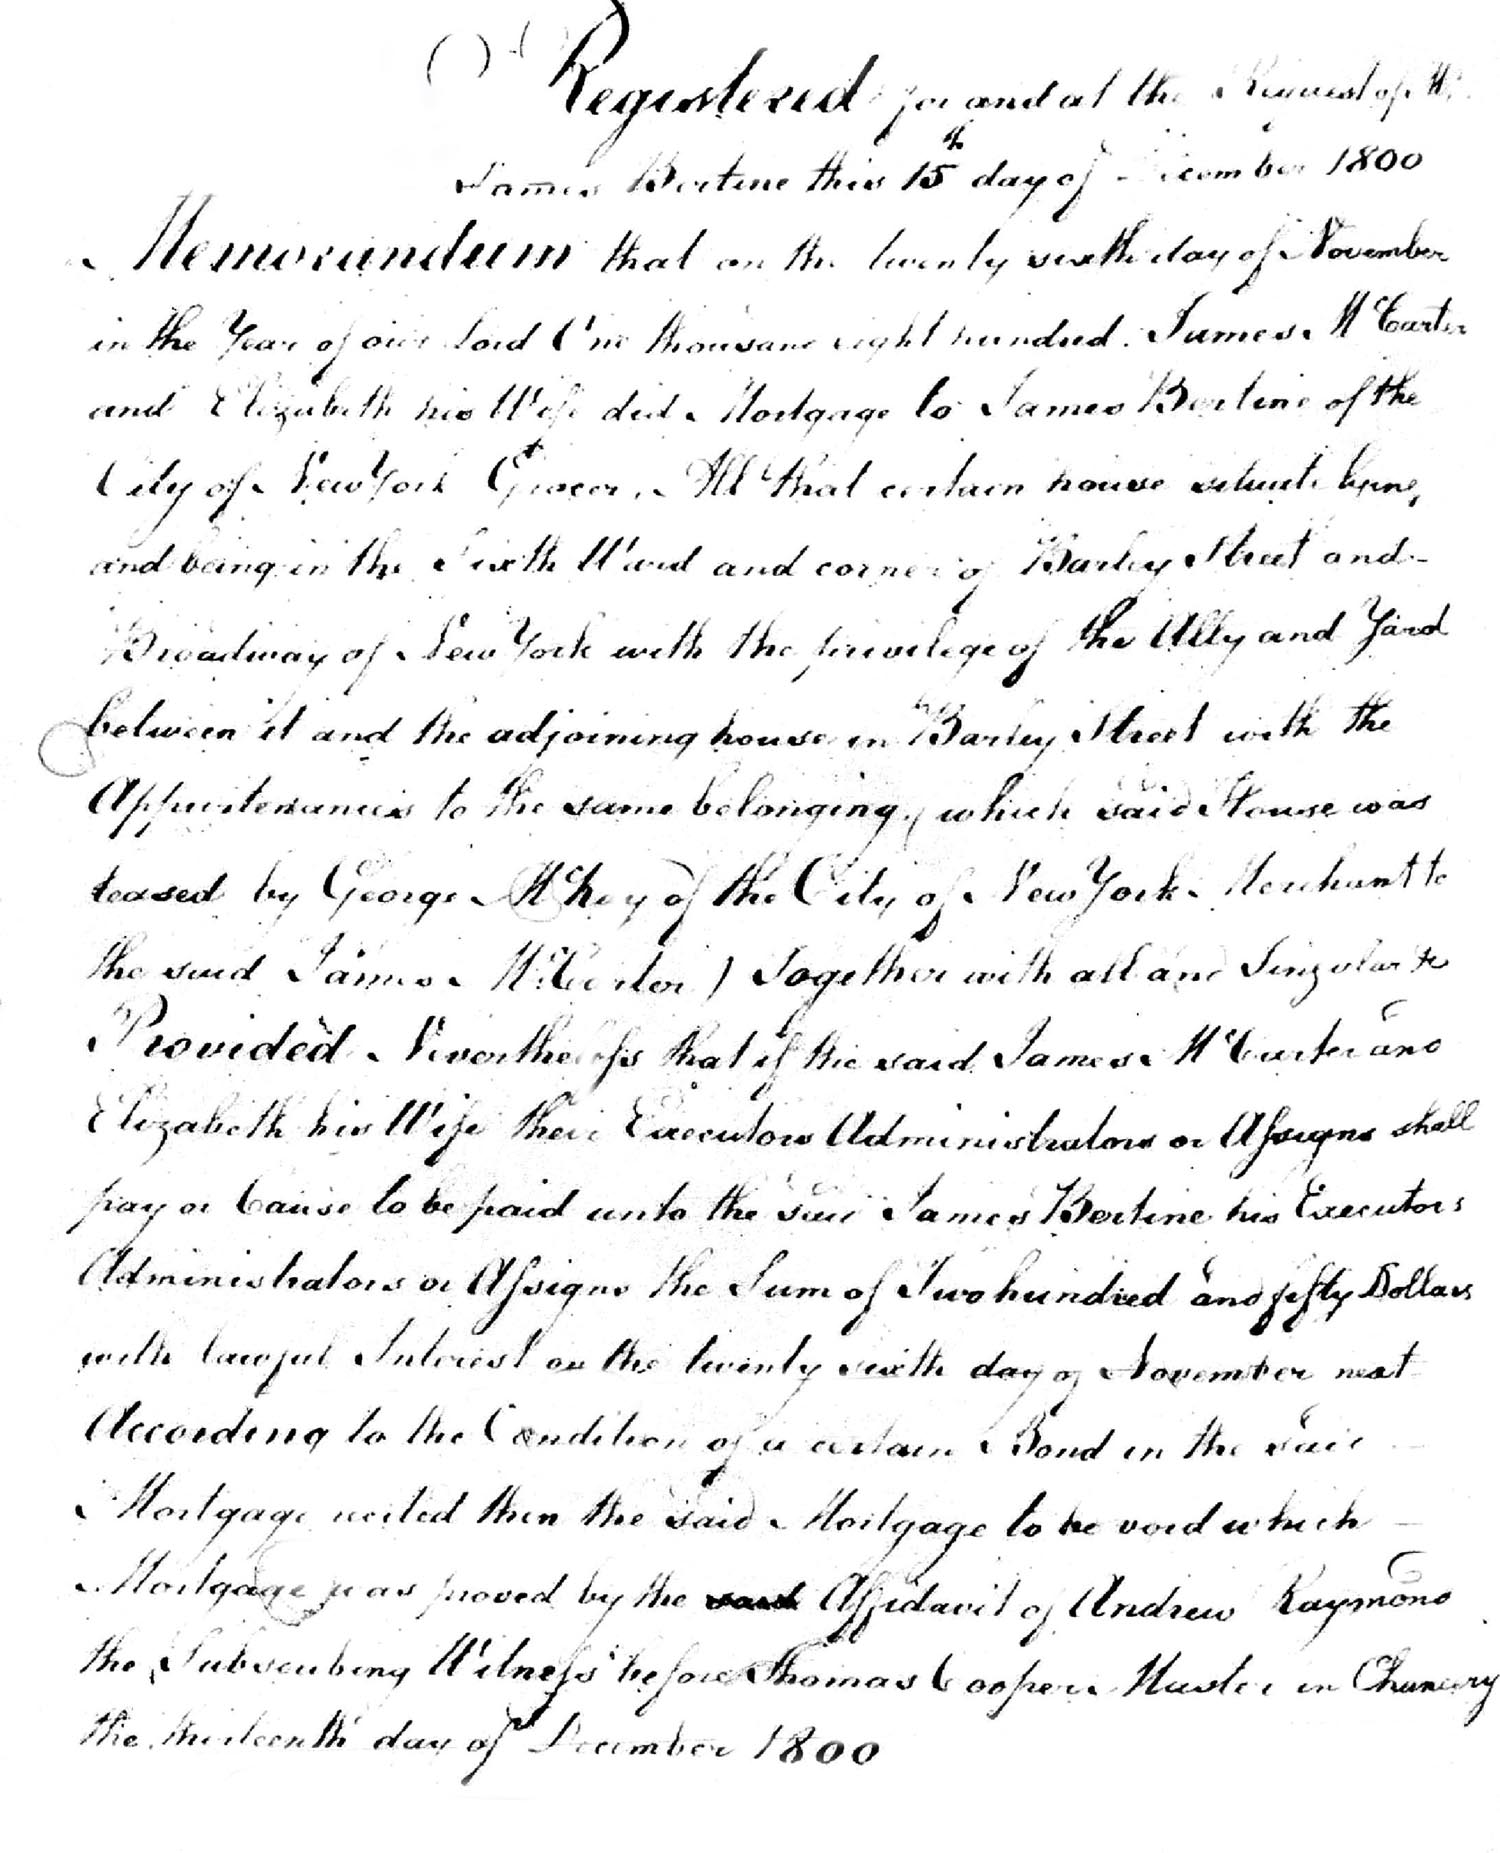 Registered for and at the Request of Mr.
James Bertine this 15th day of December 1800
Memorandum that on the twenty sixth day of November
in the Year of our Lord One thousand eight hundred. James McCarter
and Elizabeth his Wife did Mortgage to James Bertine of the
City of New York Grocer. All that certain house situate lying,
and being in the Sixth Ward and corner of Barley Street and
Broadway of New York with the privilege of the Ally and Yard
between it and the adjoining house in Barley Street with the
Appurtenances to the same belonging, (which said House was
leased by George McKay of the City of New York Merchant to
the said James McCarter) Together with all and Singular &c
Provided Nevertheless that if the said James McCarter and
Elizabeth his Wife their Executors Administrators or Assigns shall
pay or Cause to be paid unto the said James Bertine his Executors
Administrators or Assigns the Sum of Two hundred and fifty Dollars
with lawful Interest on the twenty sixth day of November next
According to the Condition of a certain Bond in the said
Mortgage recited then the said Mortgage to be void which
Mortgage was proved by the said Affidavit of Andrew Raymond
the Subscribing Witness before Thomas Cooper Master in Chancery
the thirteenth day of December 1800